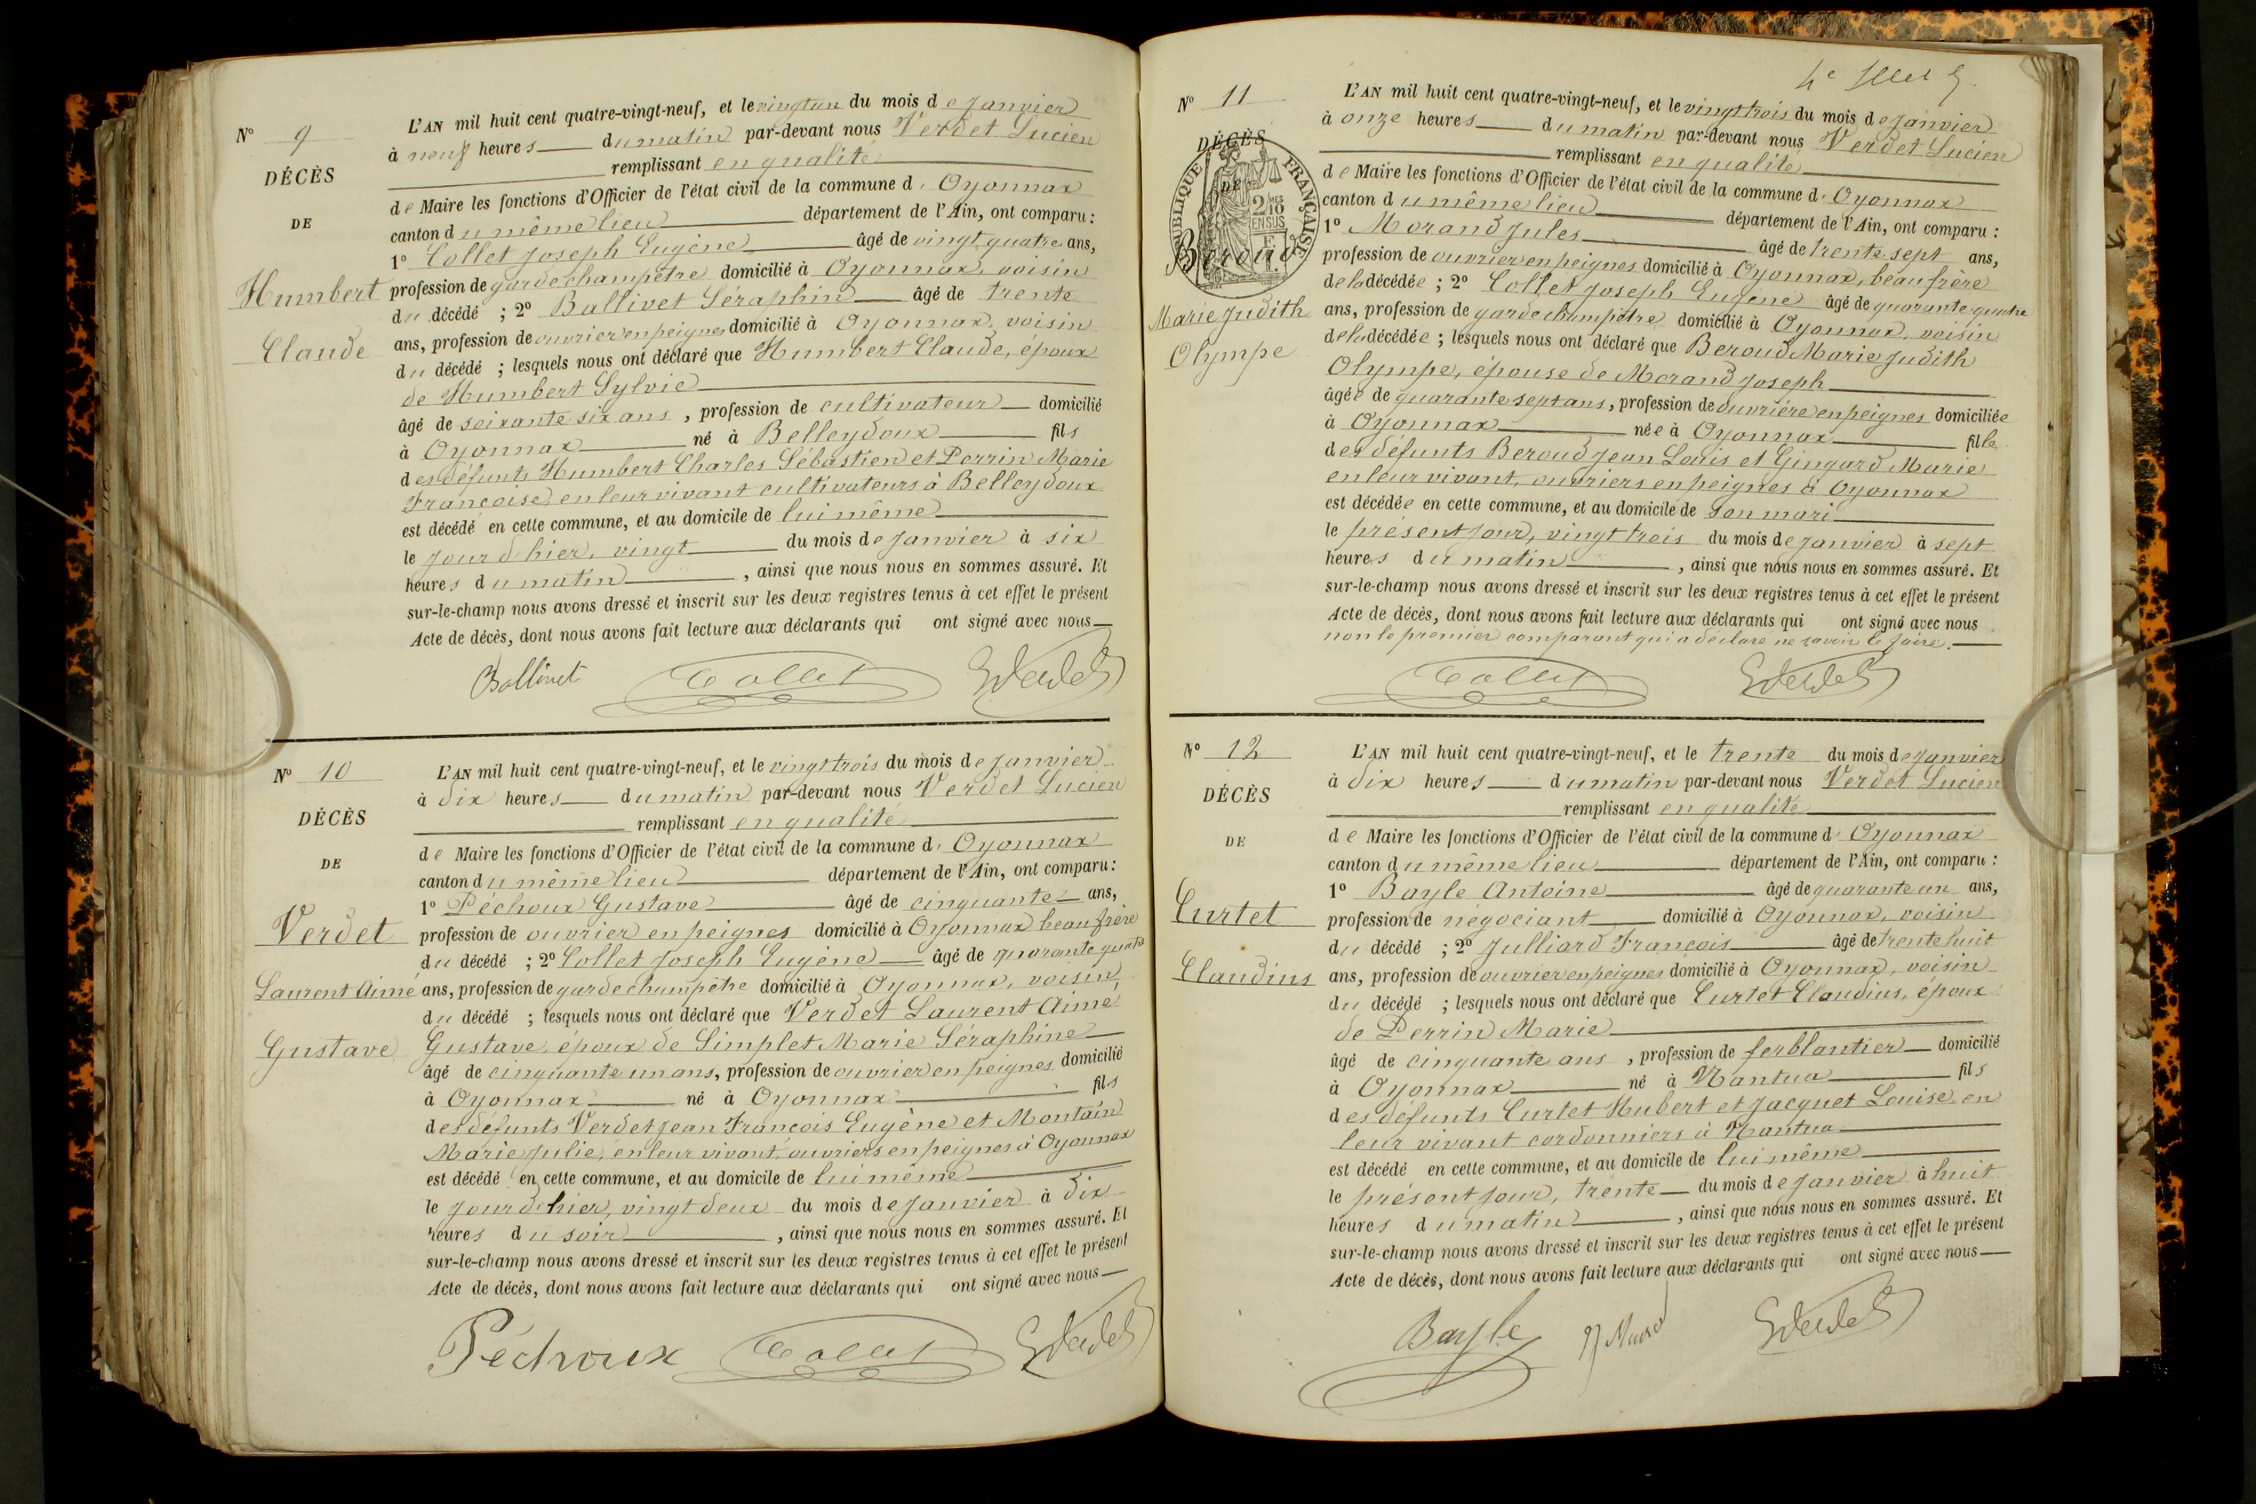 N° 9
DÉCÈS
DE
Humbert
Claude
L'AN mil huit cent quatre-vingt-neuf, et le vingt un du mois de janvier
à neuf heures du matin par-devant nous Verdet Lucien
remplissant en qualité
de Maire les fonctions d'Officier de l'état civil de la commune d' Oyonnax
canton du même lieu département de l'Ain, ont comparu :
1° Collet Joseph Eugène âgé de vingt quatre ans,
profession de garde champêtre domicilié à Oyonnax, voisin
du décédé ; 2° Ballivet Séraphin âgé de trente
ans, profession de ouvrier en peignes domicilié à Oyonnax, voisin
du décédé ; lesquels nous ont déclaré que Humbert Claude, époux
de Humbert Sylvie
âgé de soixante six ans, profession de cultivateur domicilié
à Oyonnax né à Belleydoux fils
des défunts Humbert Charles Sébastien et Perrin Marie
Françoise, en leur vivant cultivateurs à Belleydoux
est décédé en cette commune, et au domicile de lui même
le jour d'hier, vingt du mois de janvier à six
heures du matin, ainsi que nous nous en sommes assuré. Et
sur-le-champ nous avons dressé et inscrit sur les deux registres tenus à cet effet le présent
Acte de décès, dont nous avons fait lecture aux déclarants qui ont signé avec nous
Ballivet Collet Verdet
N° 10
DÉCÈS
DE
Verdet
Laurent Aimé
Gustave
L'AN mil huit cent quatre-vingt-neuf, et le vingt trois du mois de janvier
à dix heures du matin par-devant nous Verdet Lucien
remplissant en qualité
de Maire les fonctions d'Officier de l'état civil de la commune d' Oyonnax
canton du même lieu département de l'Ain, ont comparu :
1° Péchoux Gustave âgé de cinquante ans,
profession de ouvrier en peignes domicilié à Oyonnax beau frère
du décédé ; 2° Collet Joseph Eugène âgé de quarante quatre
ans, profession de garde champêtre domicilié à Oyonnax, voisin
du décédé ; lesquels nous ont déclaré que Verdet Laurent Aimé
Gustave, époux de Simplet Marie Séraphine
âgé de cinquante un ans, profession de ouvrier en peignes domicilié
à Oyonnax né à Oyonnax fils
des défunts Verdet Jean François Eugène et Montain
Marie Julie, en leur vivant, ouvriers en peignes à Oyonnax
est décédé en cette commune, et au domicile de lui même
le jour d'hier, vingt deux du mois de janvier à dix
heures du soir, ainsi que nous nous en sommes assuré. Et
sur-le-champ nous avons dressé et inscrit sur les deux registres tenus à cet effet le présent
Acte de décès, dont nous avons fait lecture aux déclarants qui ont signé avec nous
Péchoux Collet Verdet
N° 11
DÉCÈS
DE
RÉPUBLIQUE FRANÇAISE
Beroud
Marie Judith
Olympe
L'AN mil huit cent quatre-vingt-neuf, et le vingt trois du mois de janvier
à onze heures du matin par-devant nous Verdet Lucien
remplissant en qualité
de Maire les fonctions d'Officier de l'état civil de la commune d' Oyonnax
canton du même lieu département de l'Ain, ont comparu :
1° Morand Jules âgé de trente sept ans,
profession de ouvrier en peignes domicilié à Oyonnax, beau frère
de la décédée ; 2° Collet Joseph Eugène âgé de quarante quatre
ans, profession de garde champêtre domicilié à Oyonnax, voisin
de la décédée ; lesquels nous ont déclaré que Beroud Marie Judith
Olympe, épouse de Morand Joseph
âgée de quarante sept ans, profession de ouvrière en peignes domiciliée
à Oyonnax née à Oyonnax fille
des défunts Beroud Jean Louis et Gingard Marie
en leur vivant, ouvriers en peignes à Oyonnax
est décédée en cette commune, et au domicile de son mari
le présent jour, vingt trois du mois de janvier à sept
heures du matin, ainsi que nous nous en sommes assuré. Et
sur-le-champ nous avons dressé et inscrit sur les deux registres tenus à cet effet le présent
Acte de décès, dont nous avons fait lecture aux déclarants qui ont signé avec nous
non le premier comparant qui a déclaré ne savoir le faire.
Collet Verdet
N° 12
DÉCÈS
DE
Curtet
Claudius
L'AN mil huit cent quatre-vingt-neuf, et le trente du mois de janvier
à dix heures du matin par-devant nous Verdet Lucien
remplissant en qualité
de Maire les fonctions d'Officier de l'état civil de la commune d' Oyonnax
canton du même lieu département de l'Ain, ont comparu :
1° Bayle Antoine âgé de quarante un ans,
profession de négociant domicilié à Oyonnax, voisin
du décédé ; 2° Julliard François âgé de trente huit
ans, profession de ouvrier en peignes domicilié à Oyonnax, voisin
du décédé ; lesquels nous ont déclaré que Curtet Claudius, époux
de Perrin Marie
âgé de cinquante ans, profession de ferblantier domicilié
à Oyonnax né à Nantua fils
des défunts Curtet Hubert et Jacquet Louise en
leur vivant cordonniers à Nantua
est décédé en cette commune, et au domicile de lui même
le présent jour, trente du mois de janvier à huit
heures du matin, ainsi que nous nous en sommes assuré. Et
sur-le-champ nous avons dressé et inscrit sur les deux registres tenus à cet effet le présent
Acte de décès, dont nous avons fait lecture aux déclarants qui ont signé avec nous
Bayle Verdet